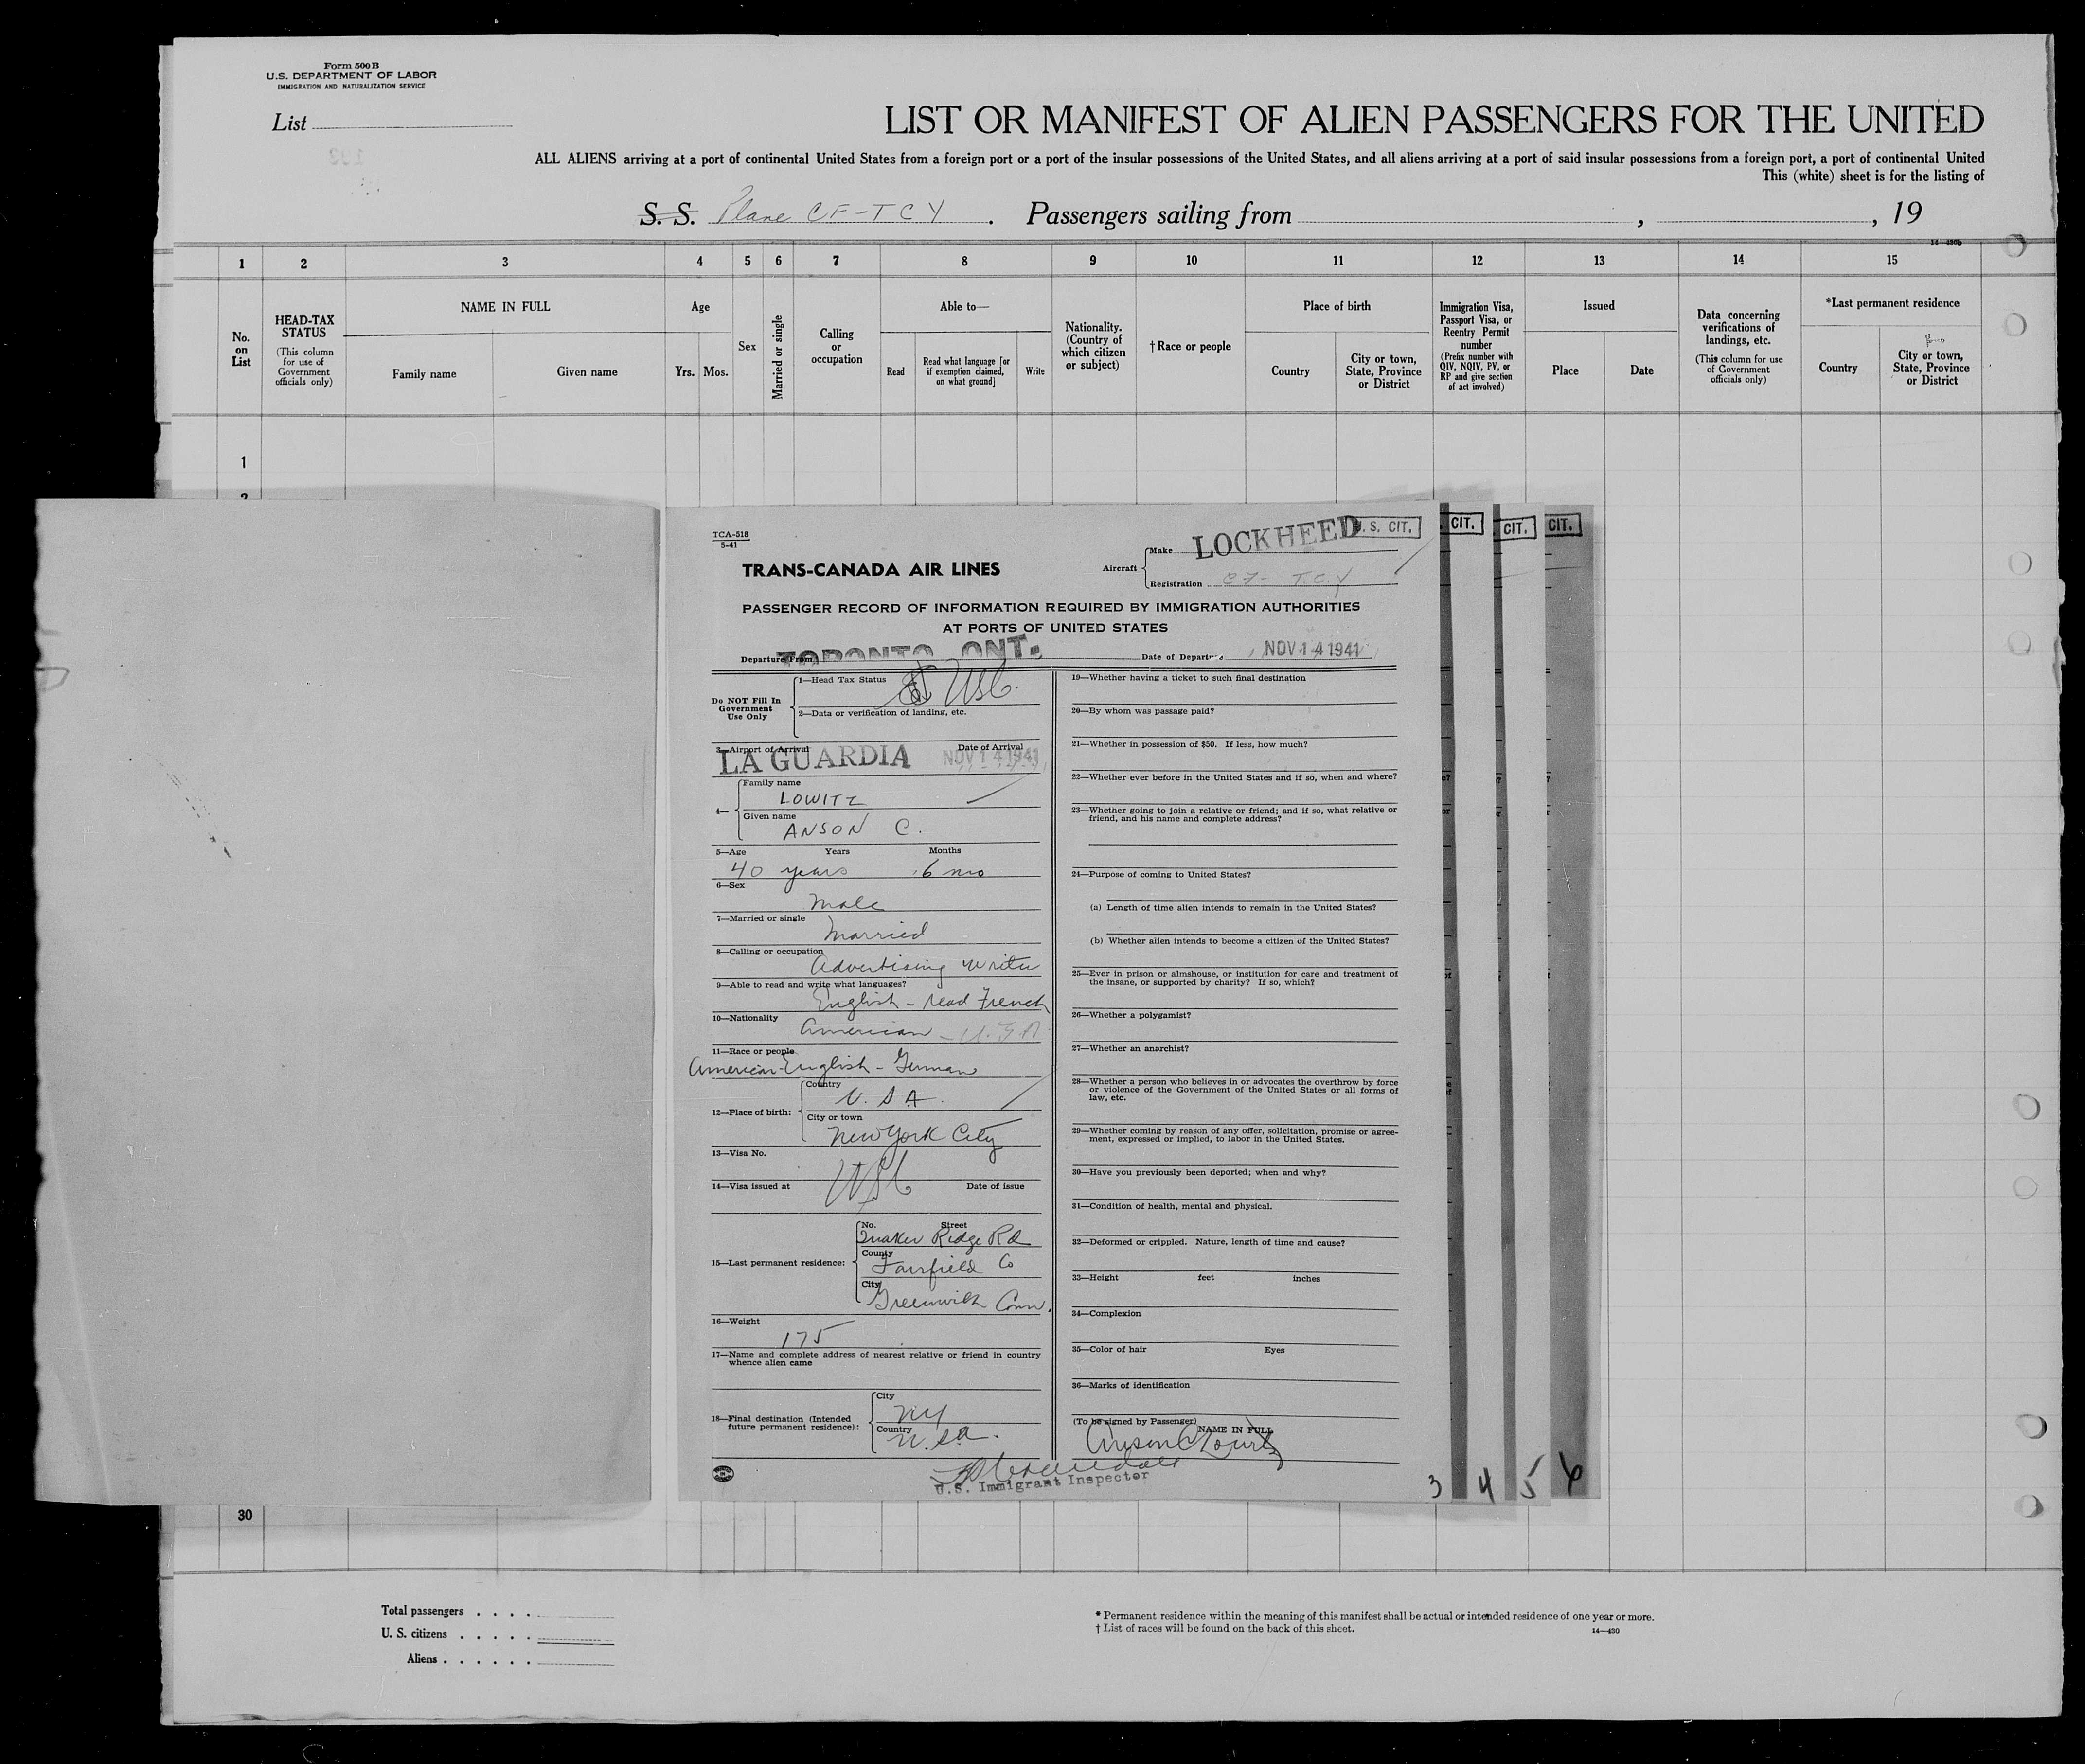 Form 500 B
U.S. DEPARTMENT OF LABOR
IMMIGRATION AND NATURALIZATION SERVICE
List
LIST OR MANIFEST OF ALIEN PASSENGERS FOR THE UNITED
ALL ALIENS arriving at a port of continental United States from a foreign port or a port of the insular possessions of the United States, and all aliens arriving at a port of said insular possessions from a foreign port, a port of continental United
This (white) sheet is for the listing of
S. S. Plane CF-TCY . Passengers sailing from , , 19
14—430b
1 2 3 4 5 6 7 8 9 10 11 12 13 14 15
No. on List
HEAD-TAX STATUS
(This column for use of Government officials only)
NAME IN FULL
Family name
Given name
Age
Yrs. Mos.
Sex
Married or single
Calling or occupation
Able to—
Read
Read what language [or if exemption claimed, on what ground]
Write
Nationality. (Country of which citizen or subject)
†Race or people
Place of birth
Country
City or town, State, Province or District
Immigration Visa, Passport Visa, or Reentry Permit number
(Prefix number with QIV, NQIV, PV, or RP and give section of act involved)
Issued
Place
Date
Data concerning verifications of landings, etc.
(This column for use of Government officials only)
*Last permanent residence
Country
City or town, State, Province or District
1
2
TCA-518
5-41
TRANS-CANADA AIR LINES
Aircraft
Make LOCKHEED
U. S. CIT.
CIT.
CIT.
CIT.
Registration CF- T.C.Y
PASSENGER RECORD OF INFORMATION REQUIRED BY IMMIGRATION AUTHORITIES
AT PORTS OF UNITED STATES
Departure From TORONTO, ONT.
Date of Departure NOV 14 1941
Do NOT Fill In Government Use Only
1—Head Tax Status USC.
2—Data or verification of landing, etc.
3—Airport of Arrival LA GUARDIA
Date of Arrival NOV 14 1941
4—
Family name
LOWITZ
Given name
ANSON C.
5—Age Years Months
40 years 6 mo
6—Sex
Male
7—Married or single
Married
8—Calling or occupation
Advertising Writer
9—Able to read and write what languages?
English - read French
10—Nationality
American - U.S.A.
11—Race or people
American-English - German
12—Place of birth:
Country
U. S A.
City or town
New York City
13—Visa No.
USC
14—Visa issued at Date of issue
15—Last permanent residence:
No. Street
Quaker Ridge Rd
County
Fairfield Co
City
Greenwich Conn.
16—Weight
175
17—Name and complete address of nearest relative or friend in country
whence alien came
18—Final destination (Intended
future permanent residence):
City
NY
Country
U.S.A.
19—Whether having a ticket to such final destination
20—By whom was passage paid?
21—Whether in possession of $50. If less, how much?
22—Whether ever before in the United States and if so, when and where?
23—Whether going to join a relative or friend; and if so, what relative or
friend, and his name and complete address?
24—Purpose of coming to United States?
(a) Length of time alien intends to remain in the United States?
(b) Whether alien intends to become a citizen of the United States?
25—Ever in prison or almshouse, or institution for care and treatment of
the insane, or supported by charity? If so, which?
26—Whether a polygamist?
27—Whether an anarchist?
28—Whether a person who believes in or advocates the overthrow by force
or violence of the Government of the United States or all forms of
law, etc.
29—Whether coming by reason of any offer, solicitation, promise or agree-
ment, expressed or implied, to labor in the United States.
30—Have you previously been deported; when and why?
31—Condition of health, mental and physical.
32—Deformed or crippled. Nature, length of time and cause?
33—Height feet inches
34—Complexion
35—Color of hair Eyes
36—Marks of identification
(To be signed by Passenger)
NAME IN FULL
Anson C Lowitz
U.S. Immigrant Inspector
3 4 5 6
30
Total passengers . . . .
U. S. citizens . . . . .
Aliens . . . . . .
* Permanent residence within the meaning of this manifest shall be actual or intended residence of one year or more.
† List of races will be found on the back of this sheet.
14—430